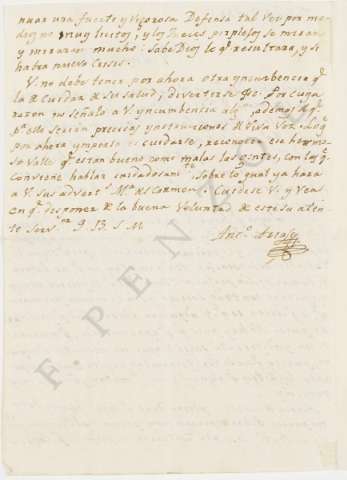 nuar una fuerte y Vigorosa Defensa tal Vez por me-
dios no muy licitos, y los Jueces perplejos se miran
y miraran mucho: Sabe Dios lo q.e resultara, y si
habra nuevo Crisis.
V. no debe tener por ahora otra yncumbencia q.e
la de Cuidar de su salud, divertirse &c. Por cuya
razon no señalo a V. yncumbencia
p.a esto serian precisas ynstrucciones de Viva Voz. Lo q.e
por ahora ymporta es cuidarse, reconocer ese hermo-
so Valle q.e es tan bueno como malas las gentes, con los q.e
Conviene hablar cuidadosam.te Sobre lo qual ya hara
a V. sus advert.s M.a del Carmen. Cuidese V. y Vea
en q.e disponer de la buena Voluntad de este su aten-
to Serv.or Q. B. S. M
Ant.o
F. PENZOL